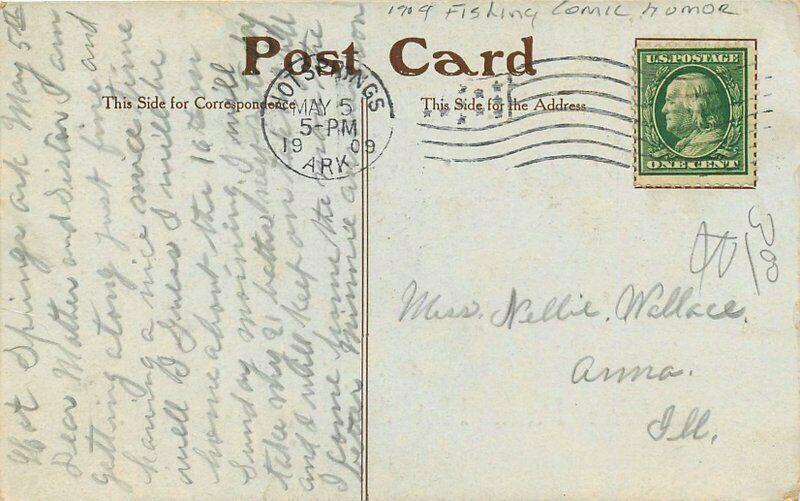 1909 Fishing Comic Humor
Post Card
This Side for Correspondence
This Side for the Address
HOT SPRINGS
MAY 5
5-PM
1909
ARK.
U.S. POSTAGE
ONE CENT
Hot Springs ark May 5th
Dear Mother and Sister I am
getting along just fine and
having a nice nice time
well I guess I will be
home about the 16 to
Sunday morning I will
take No 21 better
and I will keep on
I come home the
Minnie
300
Miss. Nellie. Wallace.
Anna.
Ill.